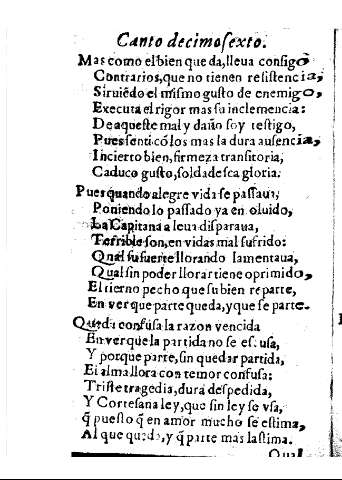 Canto decimosexto.
Mas como el bien que da, lleua consigo
Contrarios, que no tienen resistencia,
Siruiẽdo el mismo gusto de enemigo,
Executa el rigor mas su inclemencia:
De aqueste mal y daño soy testigo,
Pues senti cõ los mas la dura ausencia,
Incierto bien, firmeza transitoria,
Caduco gusto, soldadesca gloria.
Pues quando alegre vida se passaua,
Poniendo lo passado ya en oluido,
La Capitana a leua disparaua,
Terrible son, en vidas mal sufrido:
Qual su suerte llorando lamentaua,
Qual sin poder llorar tiene oprimido,
El tierno pecho que su bien reparte,
En ver que parte queda, y que se parte.
Queda confusa la razon vencida
En ver que la partida no se escusa,
Y porque parte, sin quedar partida,
El alma llora con temor confusa:
Triste tragedia, dura despedida,
Y Cortesana ley, que sin ley se vsa,
q̃ puesto q̃ en amor mucho se estima,
Al que queda, y q̃ parte mas lastima.
Qual